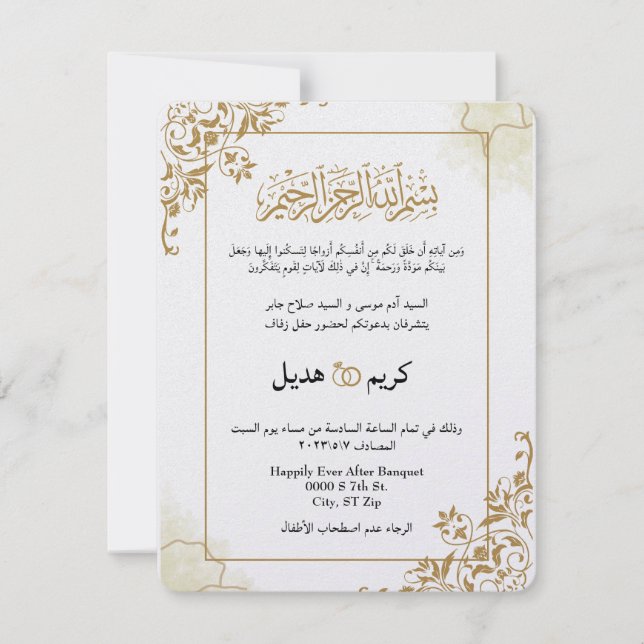 بِسْمِ اللَّهِ الرَّحْمَنِ الرَّحِيمِ
وَمِن آياتِهِ أَن خَلَقَ لَكُم مِن أَنفُسِكُم أَزواجًا لِتَسكُنوا إِلَيها وَجَعَلَ
بَينَكُم مَوَدَّةً وَرَحمَةً ۚ إِنَّ في ذٰلِكَ لَآياتٍ لِقَومٍ يَتَفَكَّرونَ
السيد آدم موسى و السيد صلاح جابر
يتشرفان بدعوتكم لحضور حفل زفاف
كريم هديل
وذلك في تمام الساعة السادسة من مساء يوم السبت
المصادف ٧\٥\٢٠٢٣
Happily Ever After Banquet
0000 S 7th St.
City, ST Zip
الرجاء عدم اصطحاب الأطفال